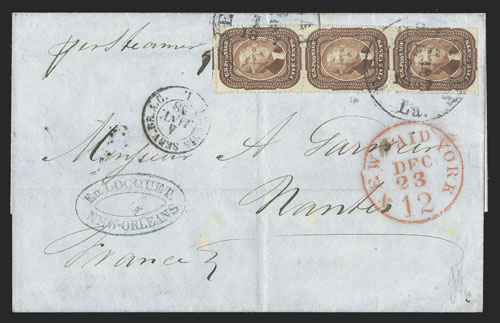 per Steamer
La.
SERV. BR. A.C.
4
JANV.
58
Monsieur A Garnier
Nantes
France
Em LOCQUET.
NEW-ORLEANS
NEW PAID YORK
DEC
23
12